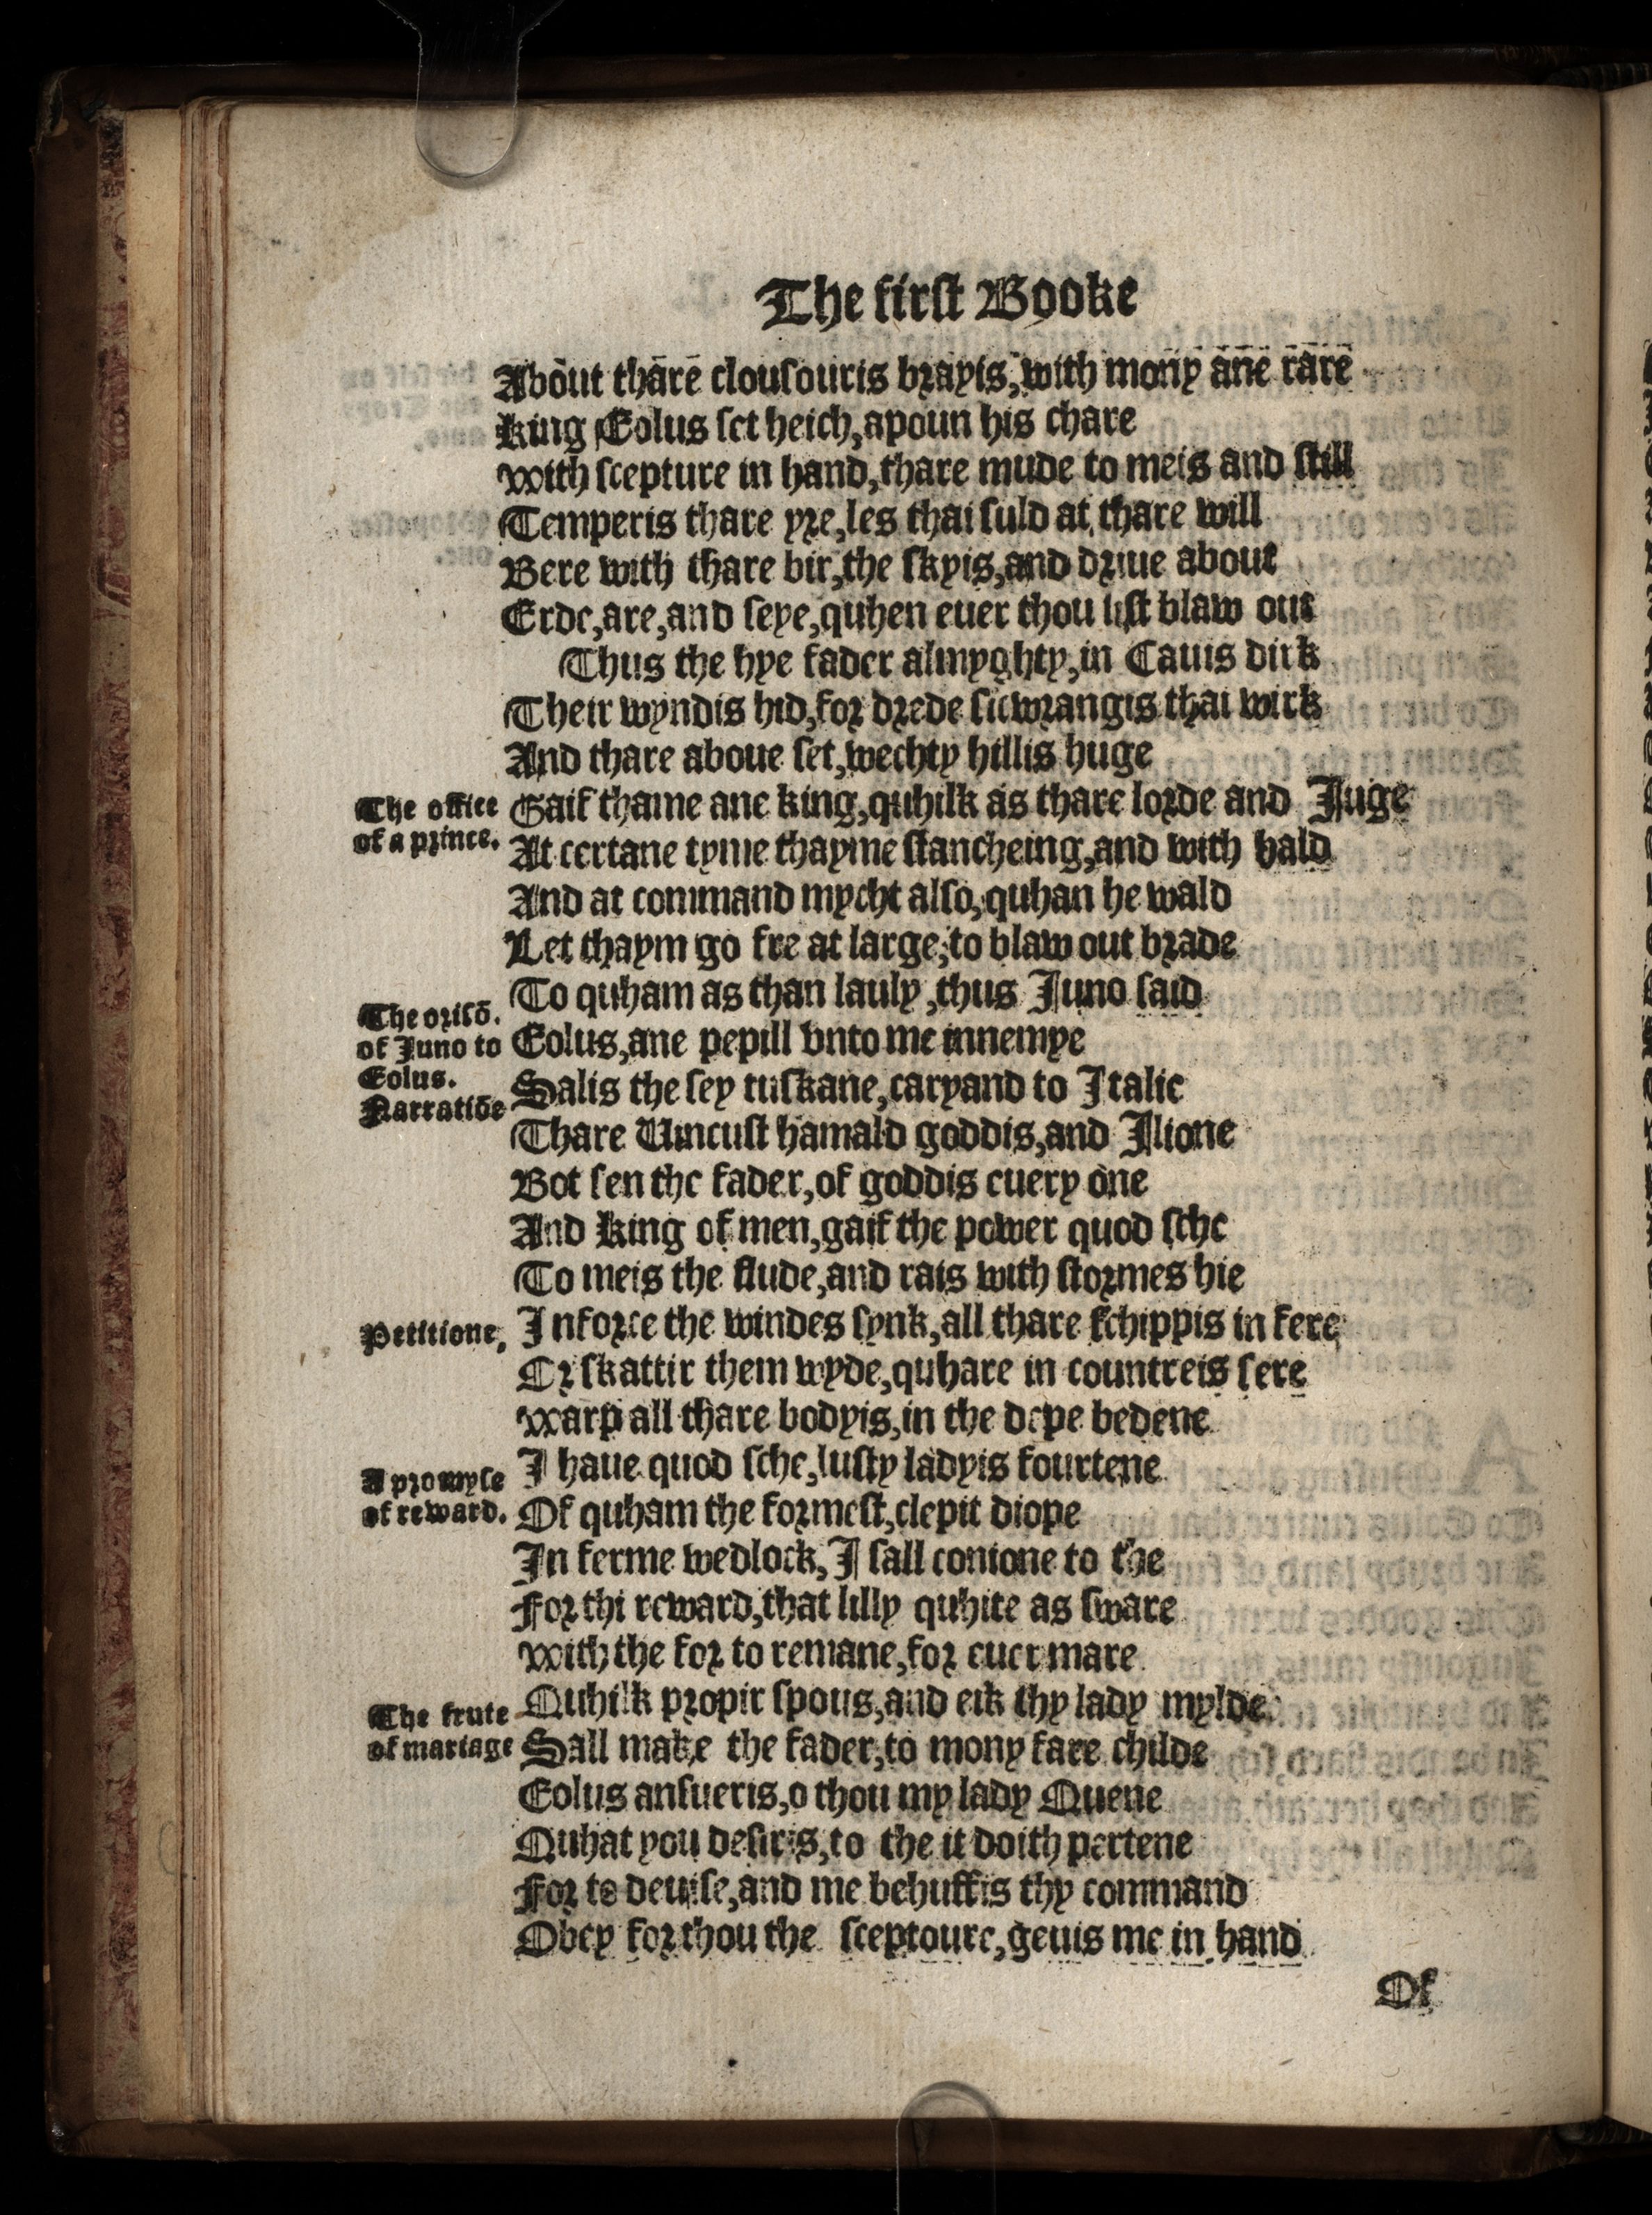 The first Booke
About thare clousouris brayis, with mony ane rare
King Eolus set heich, apoun his chare
With scepture in hand, thare mude to meis and still
Temperis thare yre, les thai suld at thare will
Bere with thare bir, the skyis, and driue about
Erde, are, and seye, quhen euer thou list blaw out
Thus the hye fader almyghty, in Cauis dirk
Their wyndis hid, for drede sic wrangis thai wirk
And thare aboue set, wechty hillis huge
The office
of a prince.
Gaif thame ane king, quhilk as thare lorde and Juge
At certane tyme thayme stancheing, and with hald
And at command mycht also, quhan he wald
Let thaym go fre at large, to blaw out brade
To quham as than lauly, thus Juno said
The orisō.
of Juno to
Eolus.
Narratiōe
Eolus, ane pepill vnto me innemye
Salis the sey tuskane, caryand to Italie
Thare Uincust hamald goddis, and Ilione
Bot sen the fader, of goddis euery one
And King of men, gaif the power quod sche
To meis the flude, and rais with stormes hie
Petitione,
Inforce the windes synk, all thare schippis in fere
Or skattir them wyde, quhare in countreis sere
Warp all thare bodyis, in the depe bedene
I haue quod sche, lusty ladyis fourtene
A promyse
of reward.
Of quham the formest, clepit diope
In ferme wedlock, I sall conione to the
For thi reward, that lilly quhite as sware
With the for to remane, for euer mare
The frute
of mariage
Quhilk propir spous, and eik thy lady mylde
Sall make the fader, to mony fare childe
Eolus ansueris, o thou my lady Quene
Quhat you desiris, to the it doith pertene
For to deuise, and me behuffis thy command
Obey for thou the sceptoure, geuis me in hand
Of